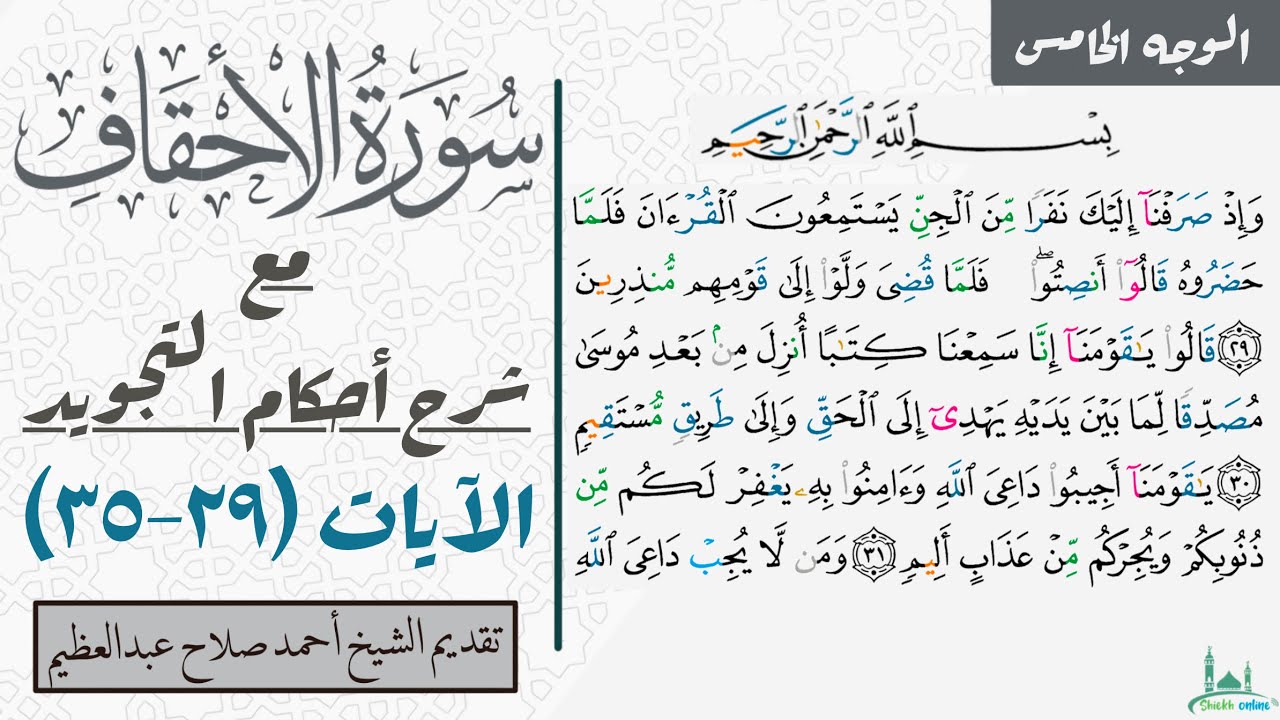 الوجه الخامس
سُورَةُ الْأَحْقَافِ
مع
شرح أحكام التجويد
الآيات (٢٩-٣٥)
تقديم الشيخ أحمد صلاح عبدالعظيم
بِسْمِ ٱللَّهِ ٱلرَّحْمَٰنِ ٱلرَّحِيمِ
وَإِذْ صَرَفْنَآ إِلَيْكَ نَفَرًا مِّنَ ٱلْجِنِّ يَسْتَمِعُونَ ٱلْقُرْءَانَ فَلَمَّا
حَضَرُوهُ قَالُوٓا۟ أَنصِتُوا۟ ۖ فَلَمَّا قُضِىَ وَلَّوْا۟ إِلَىٰ قَوْمِهِم مُّنذِرِينَ
٢٩ قَالُوا۟ يَٰقَوْمَنَآ إِنَّا سَمِعْنَا كِتَٰبًا أُنزِلَ مِنۢ بَعْدِ مُوسَىٰ
مُصَدِّقًا لِّمَا بَيْنَ يَدَيْهِ يَهْدِىٓ إِلَى ٱلْحَقِّ وَإِلَىٰ طَرِيقٍ مُّسْتَقِيمٍ
٣٠ يَٰقَوْمَنَآ أَجِيبُوا۟ دَاعِىَ ٱللَّهِ وَءَامِنُوا۟ بِهِۦ يَغْفِرْ لَكُم مِّن
ذُنُوبِكُمْ وَيُجِرْكُم مِّنْ عَذَابٍ أَلِيمٍ ٣١ وَمَن لَّا يُجِبْ دَاعِىَ ٱللَّهِ
Shiekh online